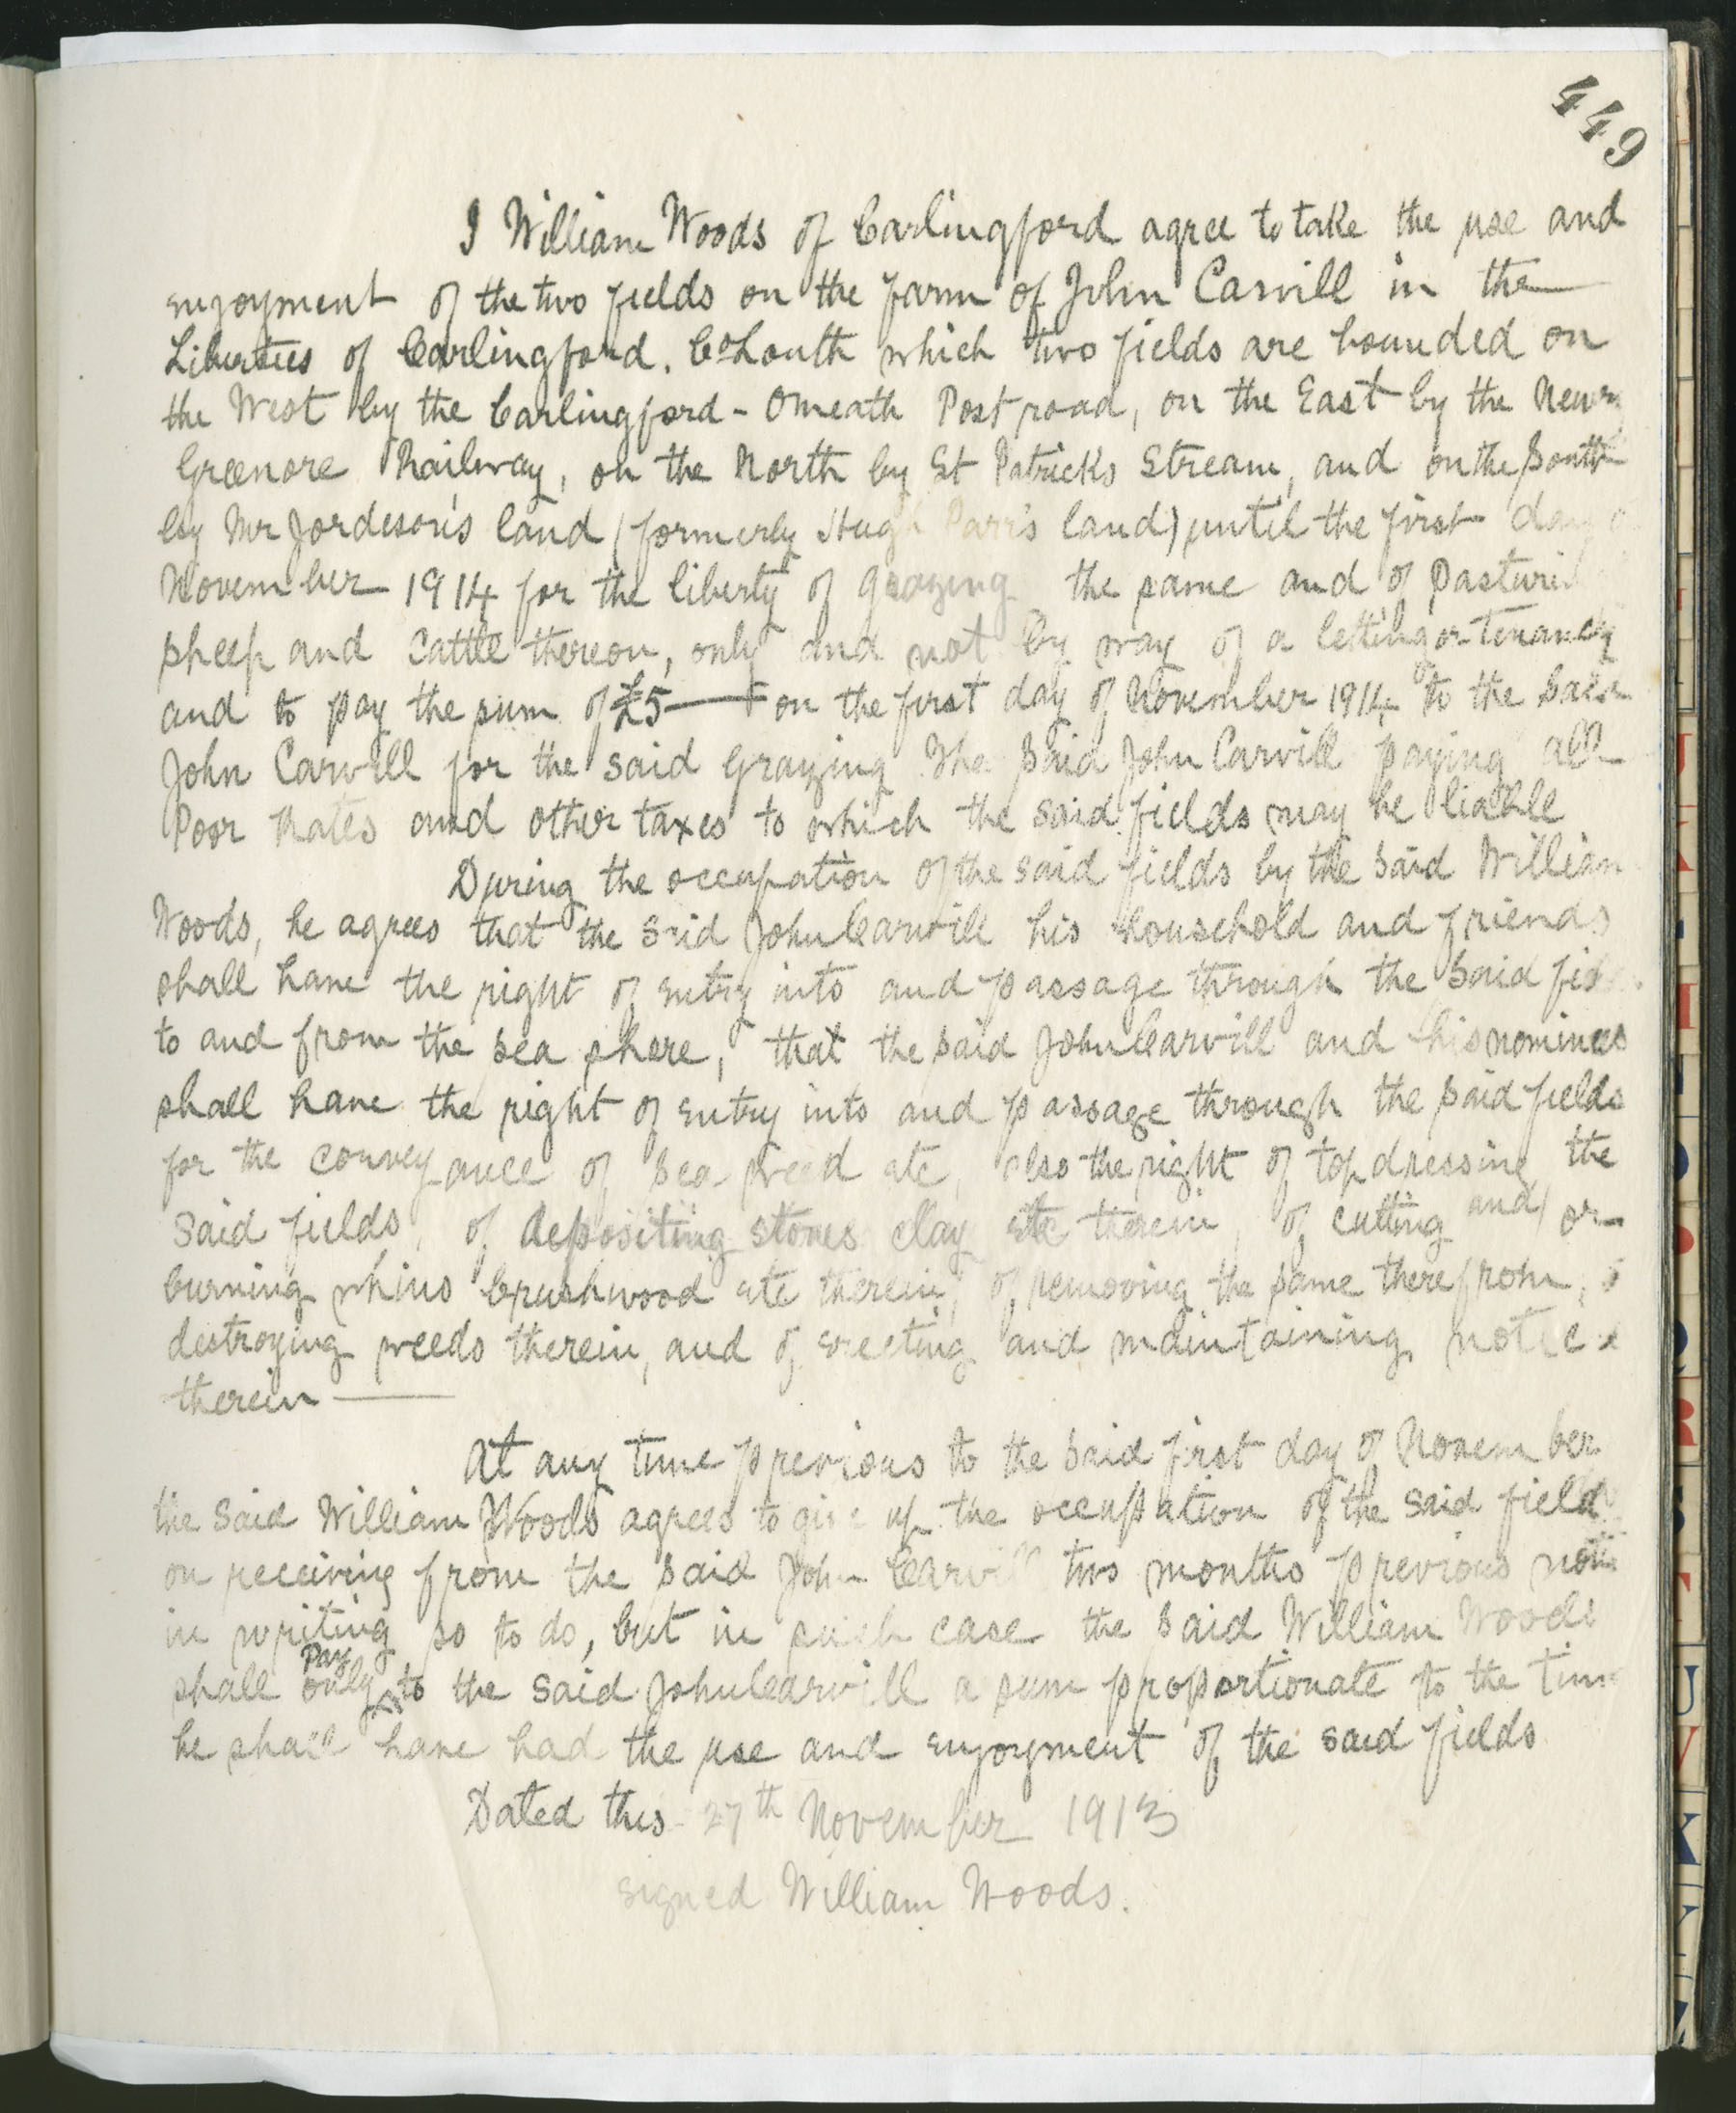 449
I William Woods of Carlingford agree to take the use and
enjoyment of the two fields on the farm of John Carvill in the
Liberties of Carlingford. Co Louth which two fields are bounded on
the West by the Carlingford - Omeath Post road, on the East by the Newry
Greenore Railway, on the North by St Patricks Stream, and on the South
by Mr Jordeson's land (formerly Hugh Parr's land) until the first day
November 1914 for the liberty of grazing the same and of Pasturin
sheep and Cattle thereon, only and not by way of a letting or Tenancy
and to pay the sum of £5 — on the first day of November 1914 to the said
John Carvill for the said Grazing The said John Carvill paying all
Poor Rates and other taxes to which the said fields may be liable
During the occupation of the said fields by the said William
Woods, he agrees that the said John Carvill his household and friends
shall have the right of entry into and passage through the said fie
to and from the sea shore, that the said John Carvill and his nominees
shall have the right of entry into and passage through the said fields
for the conveyance of sea weed etc, also the right of top dressing the
said fields, of depositing stones clay etc therein, of cutting and/or
burning whins brushwood etc therein, of removing the same therefrom,
destroying weeds therein, and of erecting and maintaining notice
therein —
At any time previous to the said first day of November
the said William Woods agrees to give up the occupation of the said field
on receiving from the said John Carvill two months previous notic
in writing so to do, but in such case the said William Woods
shall only Pay to the said John Carvill a sum proportionate to the time
he shall have had the use and enjoyment of the said fields
Dated this 27th November 1913
signed William Woods.